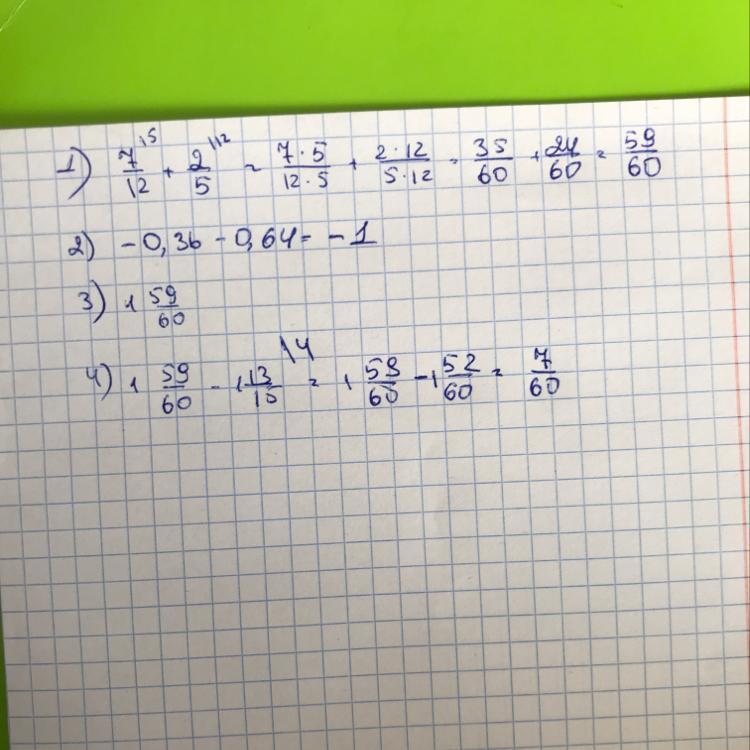 1) 7/12 \5 + 2/5 \12 = 7·5/12·5 + 2·12/5·12 = 35/60 + 24/60 = 59/60
2) -0,36 - 0,64 = -1
3) 1 59/60
4) 1 59/60 - 1 13/15 \4 = 1 59/60 - 1 52/60 = 7/60